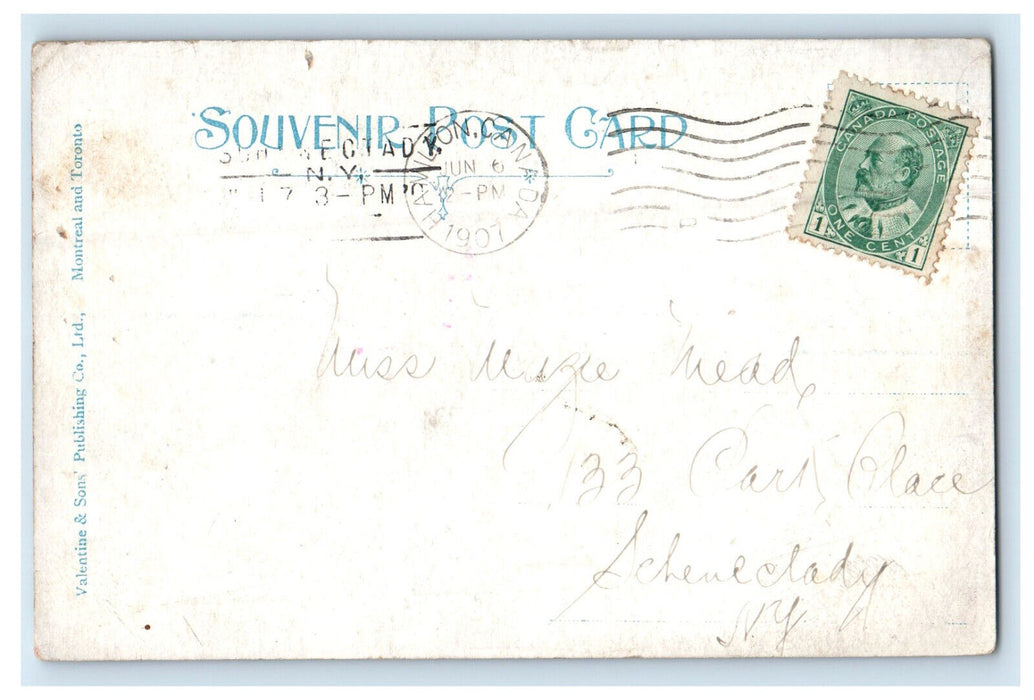 SOUVENIR POST CARD
Valentine & Sons' Publishing Co., Ltd., Montreal and Toronto
N.Y.
3-PM
HAMILTON, CANADA
JUN 6
2-PM
1907
CANADA POSTAGE
1 ONE CENT 1
Miss Mead,
33 Park Place
Schenectady
N.Y.